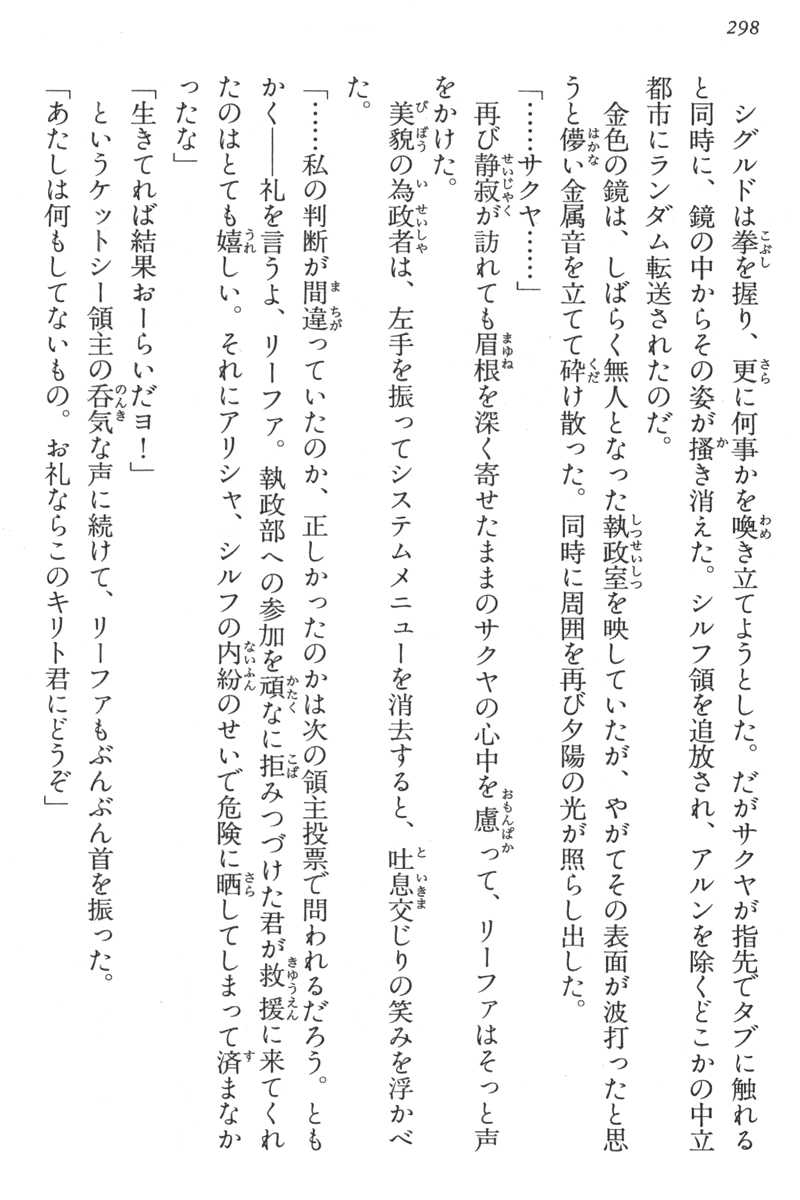 298
シグルドは拳を握り、更に何事かを喚き立てようとした。だがサクヤが指先でタブに触れる
と同時に、鏡の中からその姿が掻き消えた。シルフ領を追放され、アルンを除くどこかの中立
都市にランダム転送されたのだ。
金色の鏡は、しばらく無人となった執政室を映していたが、やがてその表面が波打ったと思
うと儚い金属音を立てて砕け散った。同時に周囲を再び夕陽の光が照らし出した。
「……サクヤ……」
再び静寂が訪れても眉根を深く寄せたままのサクヤの心中を慮って、リーファはそっと声
をかけた。
美貌の為政者は、左手を振ってシステムメニューを消去すると、吐息交じりの笑みを浮かべ
た。
「……私の判断が間違っていたのか、正しかったのかは次の領主投票で問われるだろう。とも
かく――礼を言うよ、リーファ。執政部への参加を頑なに拒みつづけた君が救援に来てくれ
たのはとても嬉しい。それにアリシャ、シルフの内紛のせいで危険に晒してしまって済まなか
ったな」
「生きてれば結果おーらいだヨ！」
というケットシー領主の呑気な声に続けて、リーファもぶんぶん首を振った。
「あたしは何もしてないもの。お礼ならこのキリト君にどうぞ」